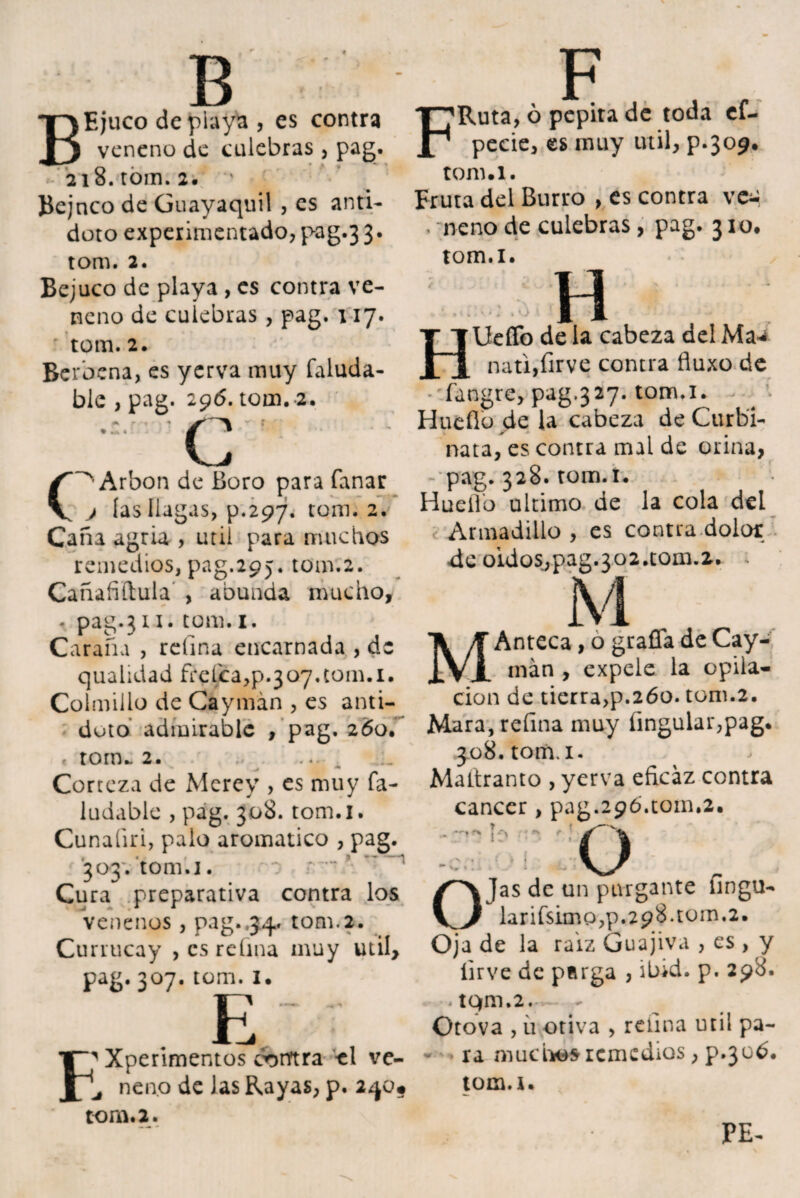 B
BEjuco de playa , es contra
veneno de culebras , pag.
218. tom. 2.
Bejuco de Guayaquil , es anti-
doto experimentado, pag.33.
tom. 2.
Bejuco de playa , es contra ve-
neno de culebras , pag. 117.
tom. 2.
Berbena, es yerva muy ſaluda-
ble , pag. 296. tom. 2.
C
CArbon de Boro para ſanar
las llagas, p.297. tom. 2.
Caña agria , util para muchos
remedios, pag.295. tom.2.
Cañafiſtula , abunda mucho,
pag.311. tom. 1.
Caraña , reſina encarnada , de
qualidad freſca,p.307.tom.1.
Colmillo de Caymàn , es anti-
doto admirable , pag. 260.
tom. 2.
Corteza de Merey , es muy ſa-
ludable , pag. 308. tom.1.
Cunaſiri, palo aromatico , pag.
303. tom.1.
Cura preparativa contra los
venenos , pag. 34. tom.2.
Currucay , es reſina muy util,
pag. 307. tom. 1.
E
EXperimentos contra el ve-
neno de las Rayas, p. 240.
tom.2.
F
FRuta, ò pepita de toda eſ-
pecie, es muy util, p.309.
tom.1.
Fruta del Burro , es contra ve-
neno de culebras , pag. 310.
tom.1.
H
HUeſſo de la cabeza del Ma-
natì,ſirve contra fluxo de
ſangre, pag.327. tom.1.
Hueſſo de la cabeza de Curbi-
nata, es contra mal de orina,
pag. 328. tom.1.
Hueſſo ultimo de la cola del
Armadillo , es contra dolor
de oìdos,pag.302.tom.2.
M
MAnteca , ò graſſa de Cay-
màn , expele la opila-
cion de tierra,p.260. tom.2.
Mara, reſina muy ſingular,pag.
308. tom. 1.
Maſtranto , yerva eficàz contra
cancer , pag.296.tom.2.
O
OJas de un purgante ſingu-
lariſsimo,p.298.tom.2.
Oja de la raìz Guajiva , es , y
ſirve de purga , ibid. p. 298.
tom.2.
Otova , ù otiva , reſina util pa-
ra muchos remedios , p.306.
tom.1.
PE-